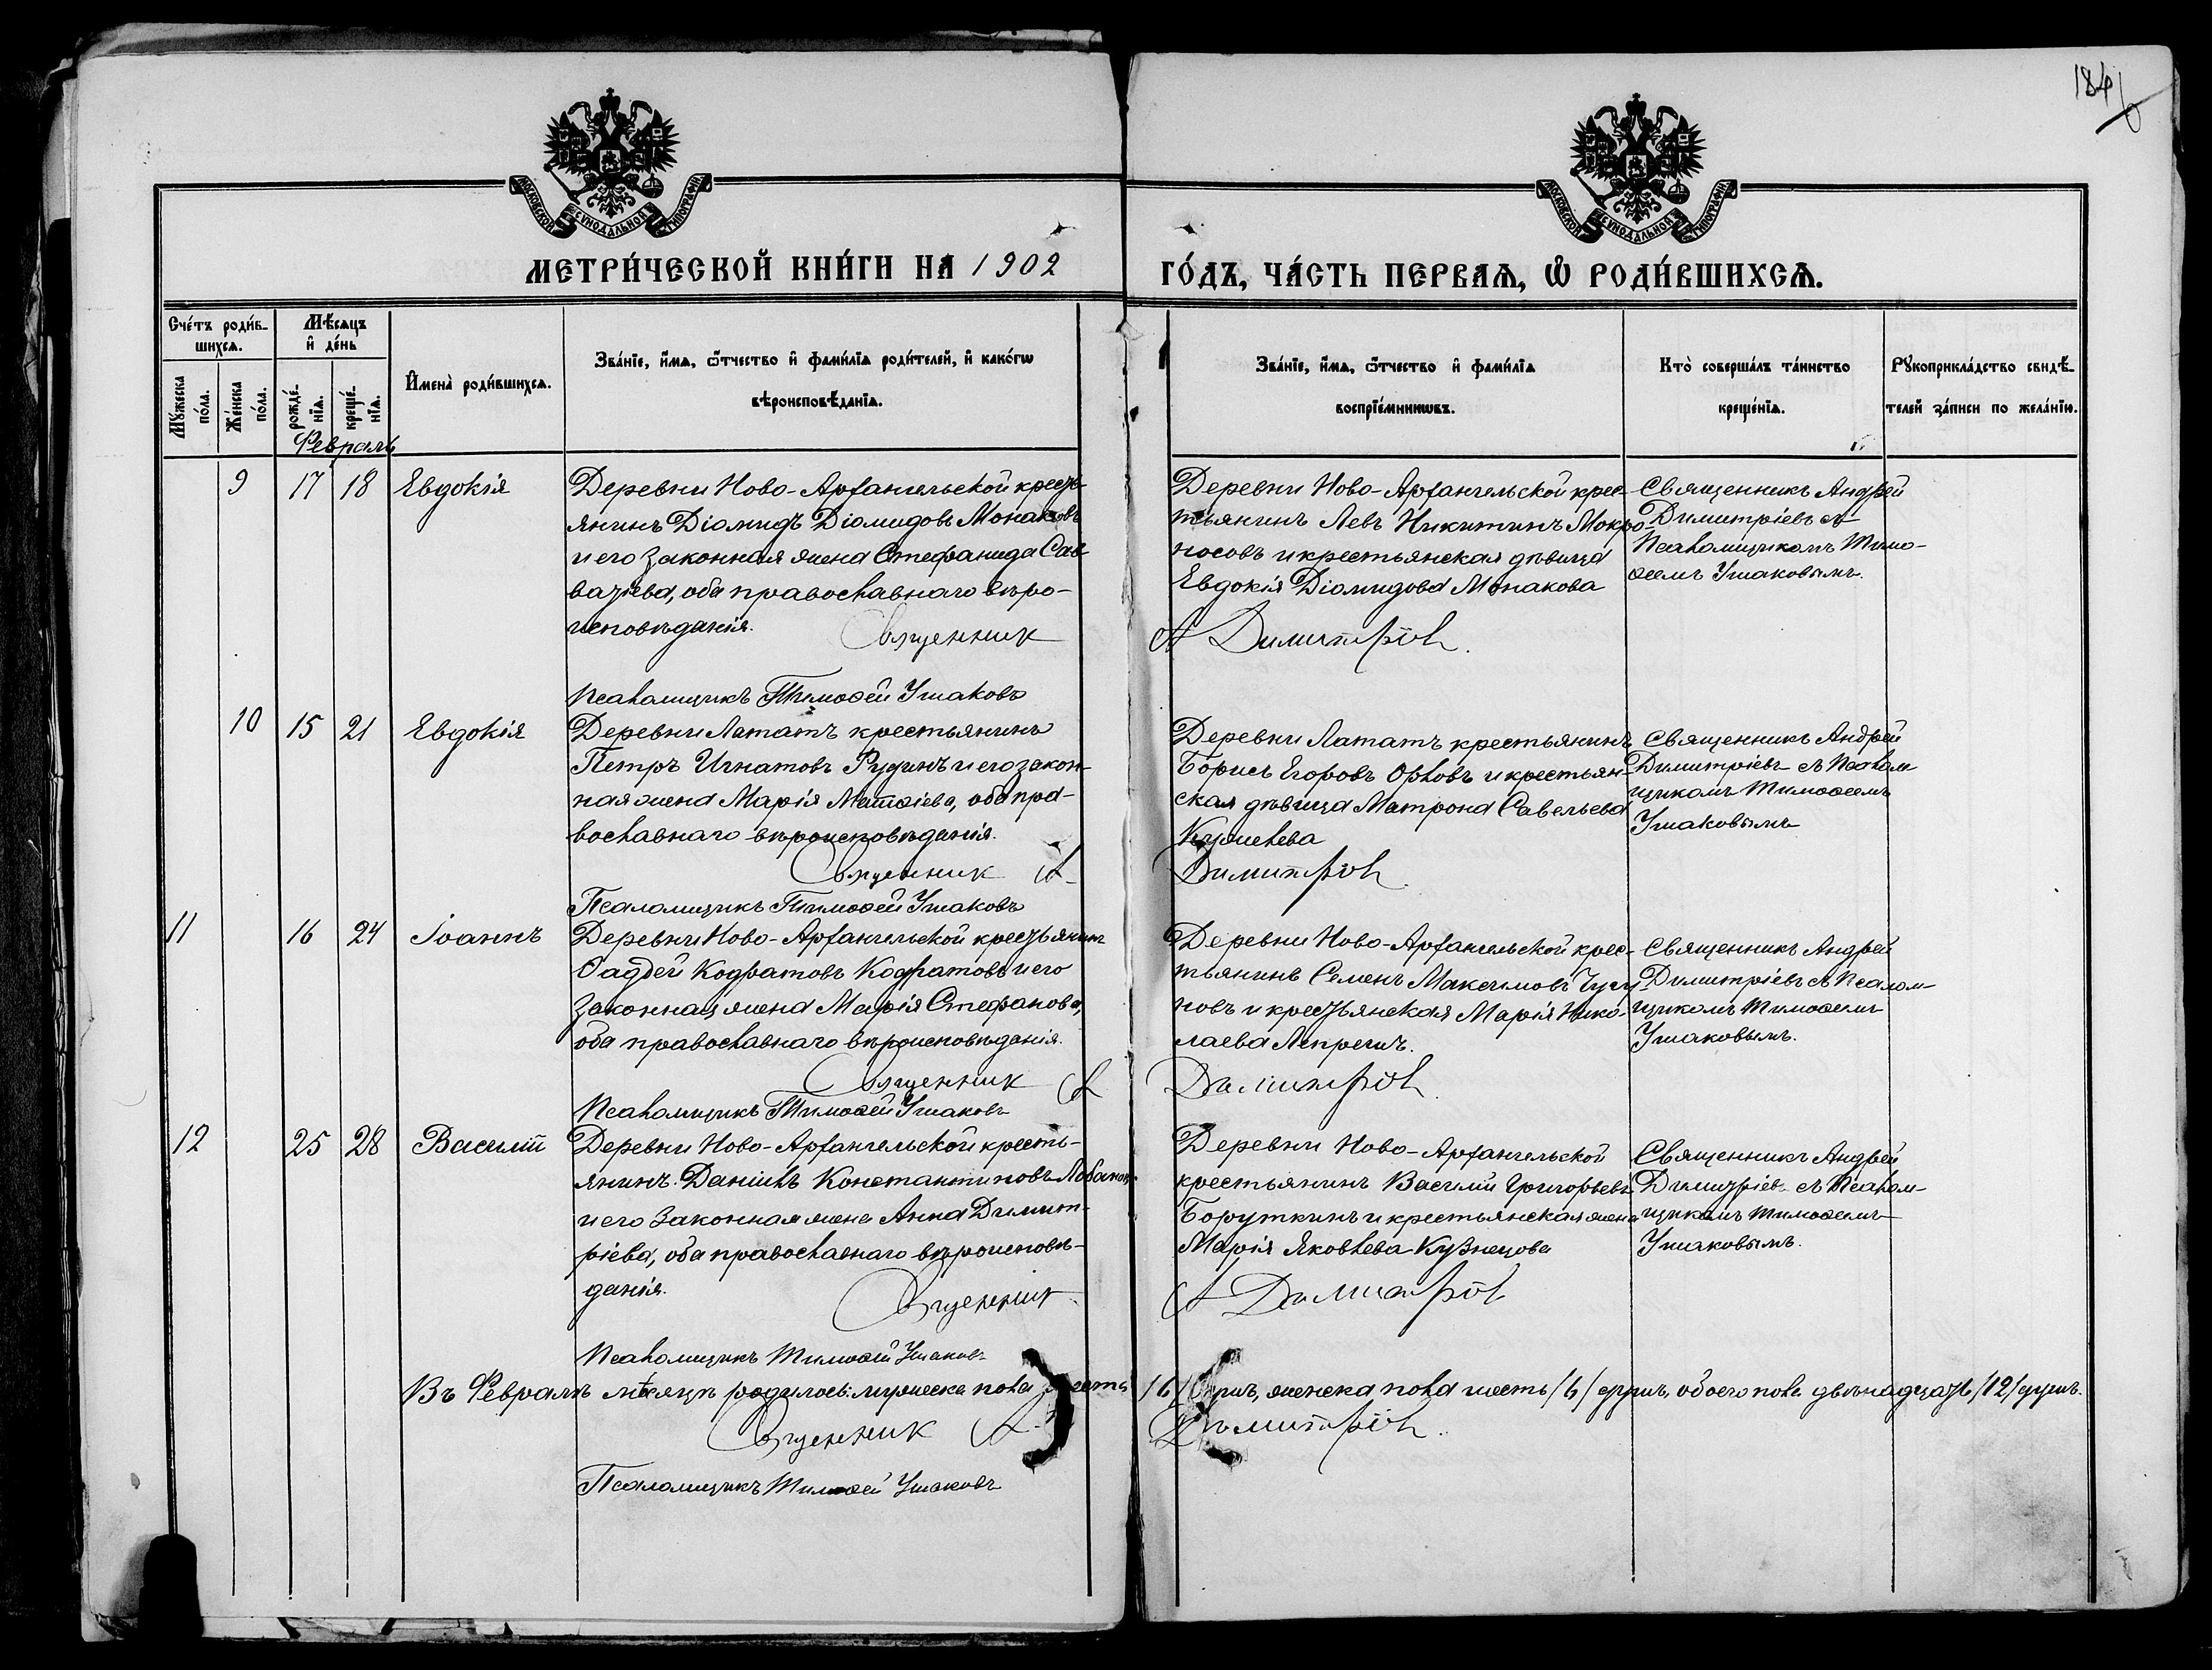 184
МОСКОВСКОЙ СУНОДАЛЬНОЙ ТИПОГРАФІИ
МОСКОВСКОЙ СУНОДАЛЬНОЙ ТИПОГРАФІИ
МЕТРИ́ЧЕСКОЙ КНИ́ГИ НА 1902
ГО́ДЪ, ЧА́СТЬ ПЕРВАѦ, Ѡ҆ РОДИ́ВШИХСѦ.
Сче́тъ роди́в-
шихсѧ.
Мѣ́сѧцъ
и҆ де́нь
Мꙋ́жеска
по́ла.
Же́нска
по́ла.
рожде́-
нїѧ.
креще́-
нїѧ.
И҆мена̀ роди́вшихсѧ.
Зва́нїе, и҆́мѧ, ѻ҆́тчество и҆ фами́лїѧ роди́телей, и҆ како́гѡ
вѣроисповѣ́данїѧ.
Зва́нїе, и҆́мѧ, ѻ҆́тчество и҆ фами́лїѧ
воспрїе́мникѡвъ.
Кто̀ соверша́лъ та́инство
креще́нїѧ.
Рꙋкоприкла́дство свидѣ́-
телей за́писи по жела́нїю.
Февраль
9 17 18 Евдокія
Деревни Ново-Архангельской кресть-
янинъ Діомидъ Діомидовъ Монаковъ
и его законная жена Стефанида Сав-
ватіева, оба православнаго вѣро-
исповѣданія.
Священник
Псаломщикъ Тимоѳей Ушаковъ
Деревни Ново-Архангельской крес-
тьянинъ Левъ Никитинъ Мокро-
носовъ и крестьянская дѣвица
Евдокія Діомидова Монакова
А Димитріев
Священникъ Андрей
Димитріевъ съ
Псаломщикомъ Тимо-
ѳеемъ Ушаковымъ.
10 15 21 Евдокія
Деревни Лататъ крестьянинъ
Петръ Игнатовъ Рудинъ и его закон-
ная жена Марія Матѳіева, оба пра-
вославнаго вѣроисповѣданія.
Священник А
Псаломщикъ Тимоѳей Ушаковъ
Деревни Лататъ крестьянинъ
Борисъ Егоровъ Орловъ и крестьян-
ская дѣвица Матрона Савельева
Димитріев
Священникъ Андрей
Димитріевъ съ Псалом-
щикомъ Тимоѳеемъ
Ушаковымъ
11 16 24 Іоаннъ
Деревни Ново-Архангельской крестьянинъ
Ѳаддей Кодратовъ Кодратовъ и его
законная жена Марія Стефанова,
оба православнаго вѣроисповѣданія.
Священник А
Псаломщикъ Тимоѳей Ушаковъ
Деревни Ново-Архангельской крес-
тьянинъ Семенъ Максимовъ Чугу-
новъ и крестьянская Марія Нико-
лаева
Димитріев
Священникъ Андрей
Димитріевъ съ Псалом-
щикомъ Тимоѳеемъ
Ушаковымъ.
12 25 28 Василій
Деревни Ново-Архангельской кресть-
янинъ Даніилъ Константиновъ Лобановъ
и его законная жена Анна Димит-
ріева, оба православнаго вѣроисповѣ-
данія.
Священник
Псаломщикъ Тимоѳей Ушаковъ
Деревни Ново-Архангельской
крестьянинъ Василій Григорьевъ
Боруткинъ и крестьянская жена
Марія Яковлева Кузнецова
А Димитріев
Священникъ Андрей
Димитріевъ съ Псалом-
щикомъ Тимоѳеемъ
Ушаковымъ.
Въ Февралѣ мѣсяцѣ родилось: мужеска пола шесть /6/ душъ, женска пола шесть /6/ душъ, обоего пола двѣнадцать /12/ душъ.
Священник А Димитріев
Псаломщикъ Тимоѳей Ушаковъ